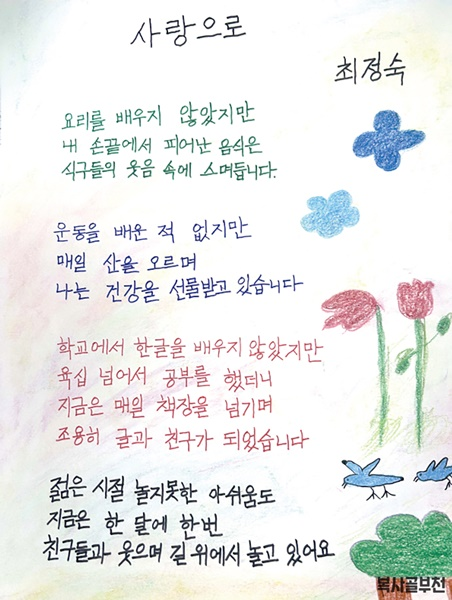 사랑으로
최정숙
요리를 배우지 않았지만
내 손끝에서 피어난 음식은
식구들의 웃음 속에 스며듭니다.
운동을 배운 적 없지만
매일 산을 오르며
나는 건강을 선물받고 있습니다
학교에서 한글을 배우지 않았지만
육십 넘어서 공부를 했더니
지금은 매일 책장을 넘기며
조용히 글과 친구가 되었습니다
젊은 시절 놀지못한 아쉬움도
지금은 한 달에 한번
친구들과 웃으며 길 위에서 놀고 있어요
복사골부천